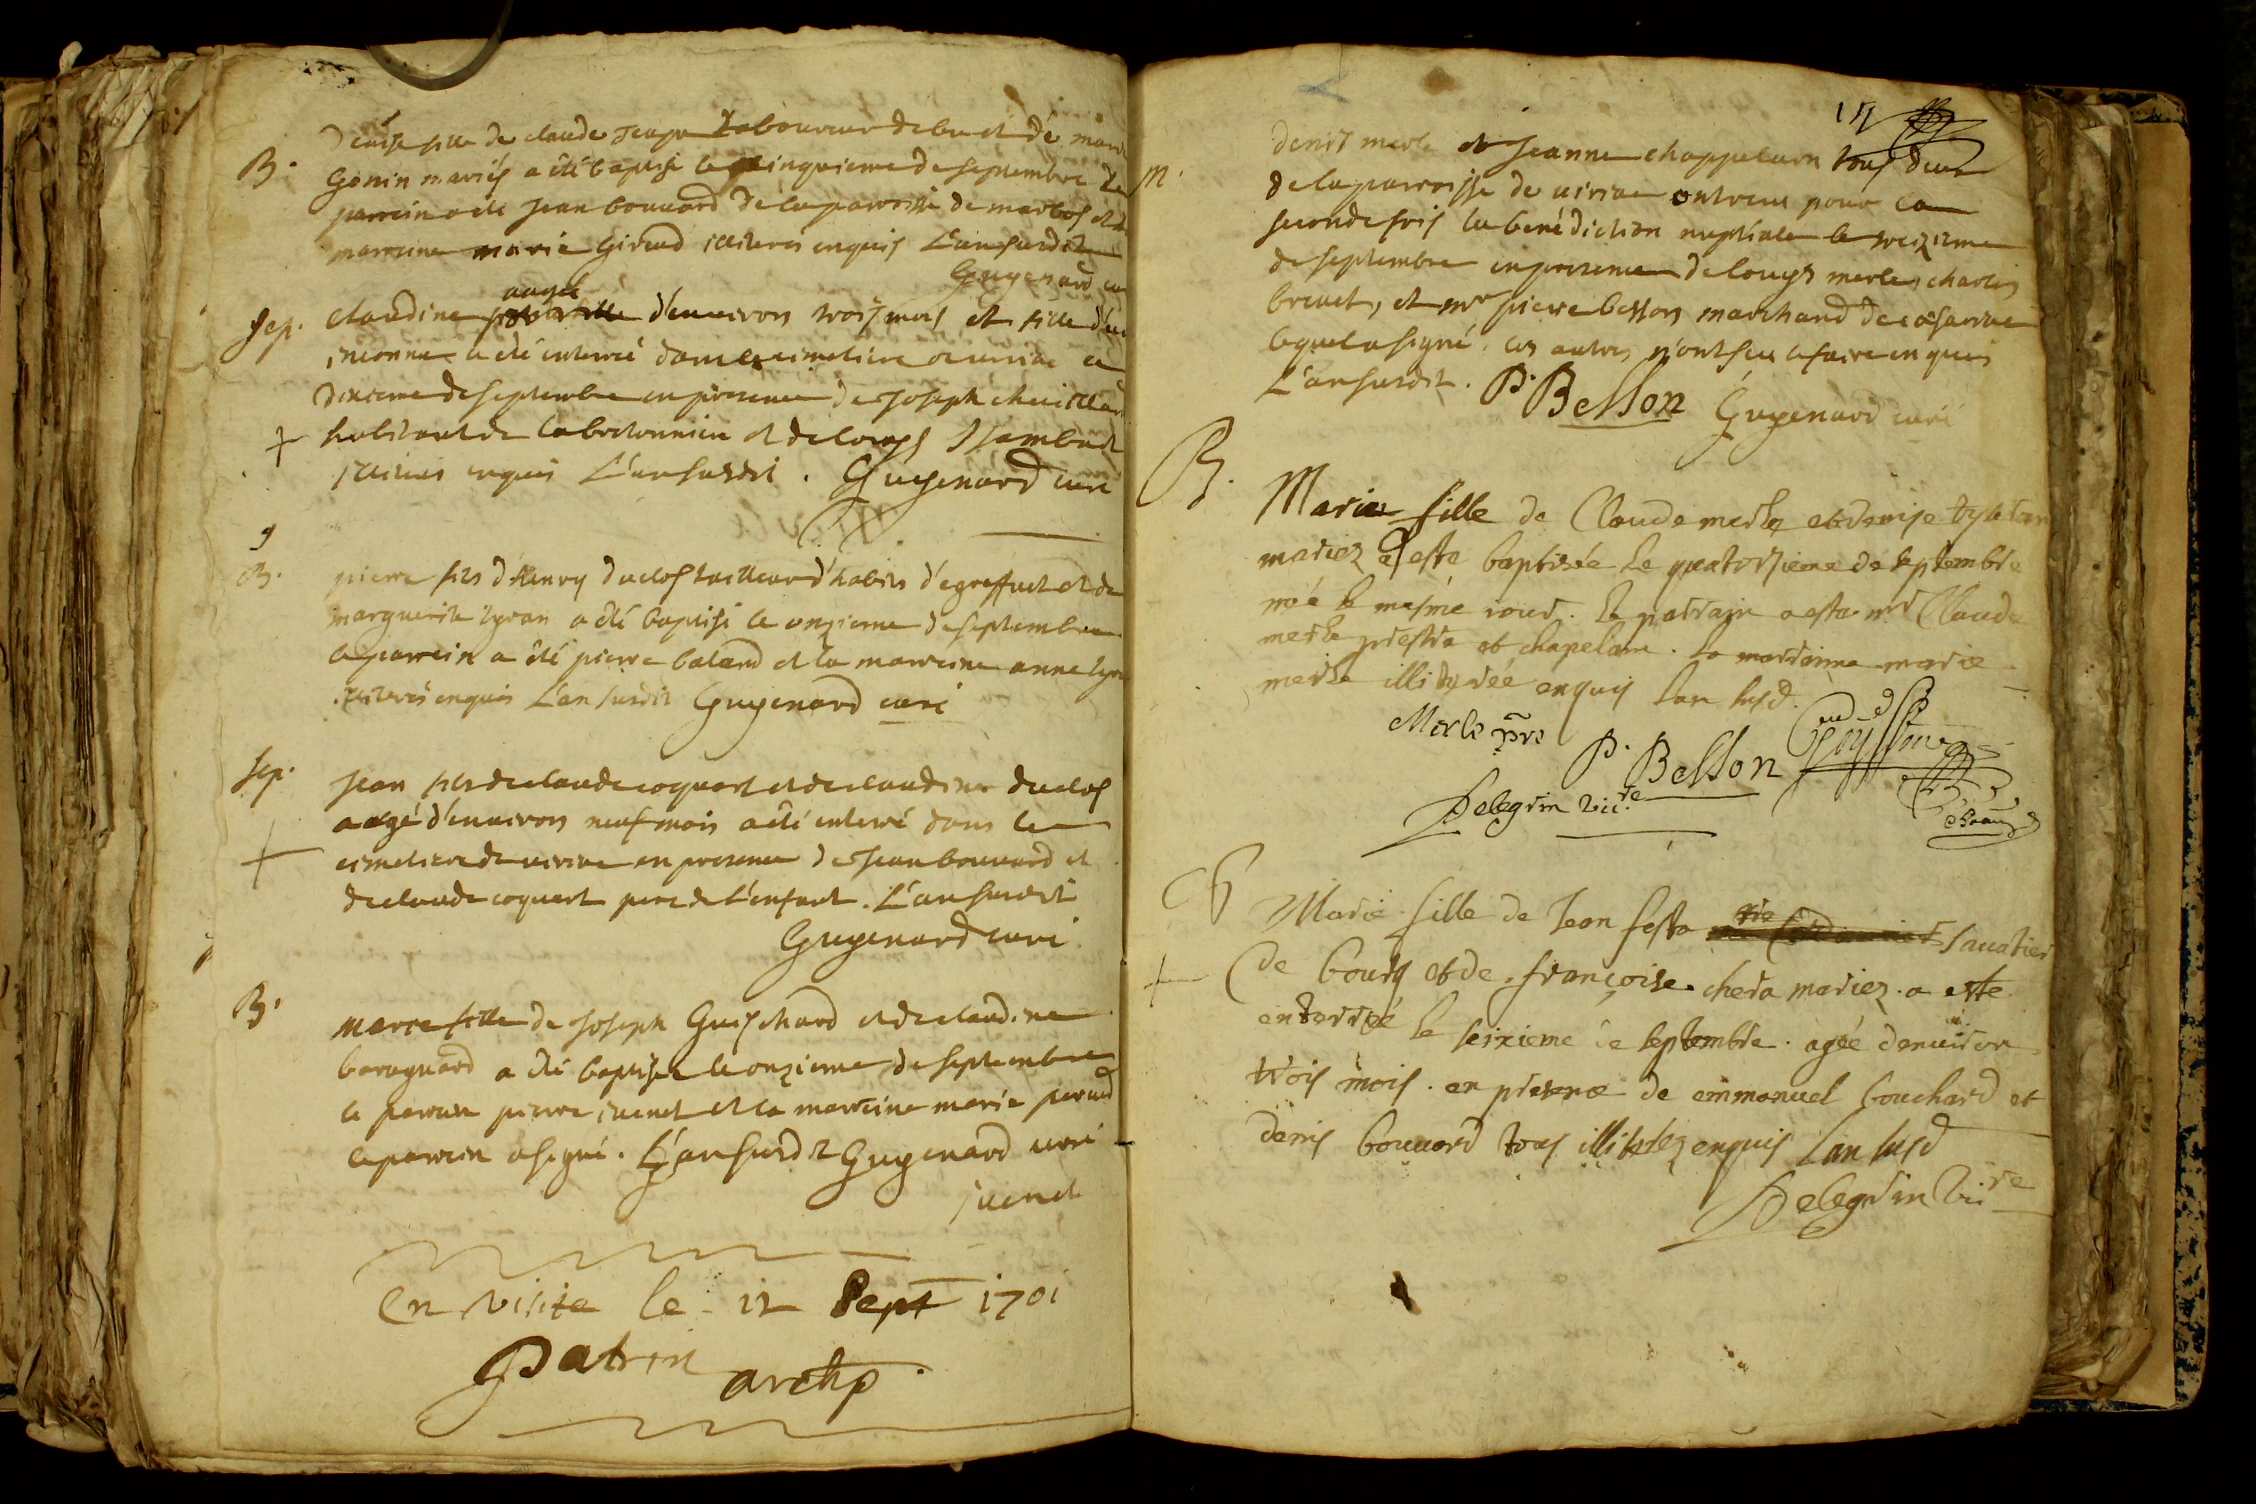 B.
fille de claude laboureur et de marie
Gonin mariés a été baptisé le cinquieme de septembre le
parrein a été Jean bouuard de la paroisse de marbos et la
marreine marie Giroud illiteres enquis L'an susdit
Guyenard curé
Sep.
aagée
claudine d'enuiron trois mois et fille d'un
inconnu a été enterré dans le cimetiere de uiriac le
dixieme de septembre en presence de Joseph cheuillard
habitant de et de Louys Jsambert
illiteres enquis L'an susdit. Guyenard curé
9
B.
pierre fils d'Henry duclos tailleur d'habits et de
marguerite tyran a été baptisé le onzieme de septembre
le parrein a été pierre baland et la marreine anne tyran
illiterés enquis L'an susdit Guyenard curé
Sep.
Jean fils de claude coquart et de claudine duclos
aagé d'enuiron neuf mois a été enterré dans le
cimetiere de uiriac en presence de Jean bouuard et
de claude coquart pere de l'enfant. L'an susdit
Guyenard curé
B.
marie fille de Joseph Guischard et de claudine
baraguard a été baptisée le onzieme de septembre
le parrein pierre iuenet et la marreine marie perrud
le parrein a signé. L'an susdit Guyenard curé
iuenet
En visite le 12 Sept 1701
Patrin archp.
15
M.
denis merle et Jeanne chappeluen tous deux
de la parroisse de uiriac ont receu pour la
seconde fois la bénédiction nuptiale le treizieme
de septembre en presence de Louys merle, charles
breuet, et mr pierre besson marchand de
lequel a signé. les autres n'ont sceu le faire enquis
L'an susdit. P. Besson Guyenard curé
B.
Marie fille de Claude merle et denise
mariez a esté baptisée le quatorzieme de septembre
née le mesme iour. le parrain a esté mr Claude
merle prestre et chapelain. la marrainne marie
merle illiterée enquis lan susd.
Merle pre
P. Besson
Pelegrin vic.re
S
Marie fille de Jean festa sauatier
de bourg et de françoise chera mariez. a esté
enterrée le seixieme de septembre. agée denuiron
trois mois. en presence de emmanuel bouchard et
denis bouuard tous illiterez enquis lan susd
Pelegrin vic.re